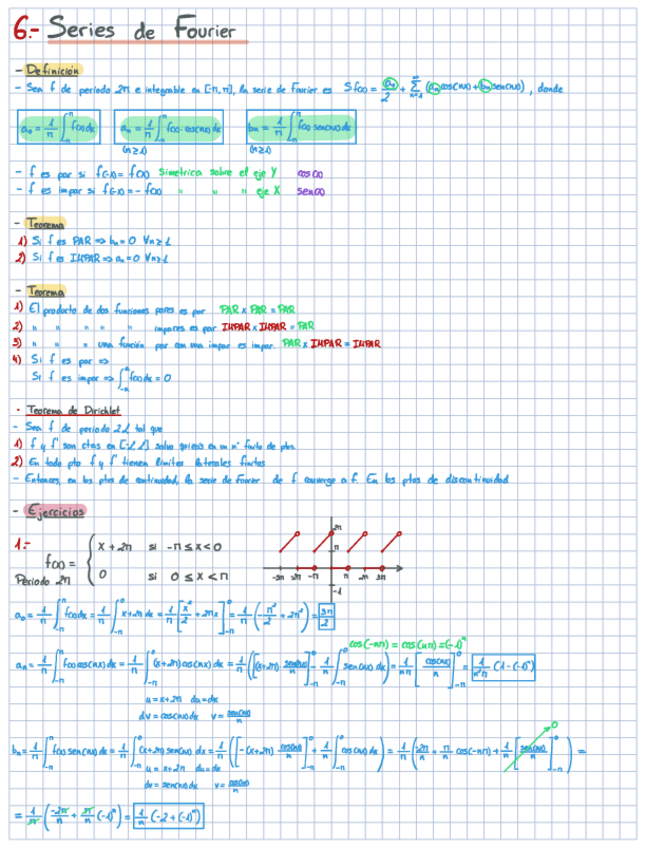 6.- Series de Fourier
- Definición
- Sea f de periodo 2π e integrable en [-π, π], la serie de Fourier es Sf(x) = a₀/2 + Σ_{n=1}^{∞} (aₙ cos(nx) + bₙ sen(nx)), donde
a₀ = 1/π ∫_{-π}^{π} f(x) dx   aₙ = 1/π ∫_{-π}^{π} f(x)·cos(nx) dx   bₙ = 1/π ∫_{-π}^{π} f(x) sen(nx) dx
(n≥1)   (n≥1)
- f es par si f(-x) = f(x) Simetrica sobre el eje Y cos(x)
- f es impar si f(-x) = -f(x) " " " eje X sen(x)
- Teorema
1) Si f es PAR ⇒ bₙ = 0 ∀n≥1
2) Si f es IMPAR ⇒ aₙ = 0 ∀n≥1
- Teorema
1) El producto de dos funciones pares es par PAR x PAR = PAR
2) " " " " " impares es par IMPAR x IMPAR = PAR
3) " " " una función par con una impar es impar. PAR x IMPAR = IMPAR
4) Si f es par ⇒
Si f es impar ⇒ ∫_{-π}^{π} f(x) dx = 0
· Teorema de Dirichlet
- Sea f de periodo 2L tal que
1) f y f' son ctas en [-L, L] salvo quizás en un nº finito de ptos
2) En todo pto f y f' tienen límites laterales finitos
- Entonces, en los ptos de continuidad, la serie de Fourier de f converge a f. En los ptos de discontinuidad
- Ejercicios
1.-
f(x) = { x + 2π si -π ≤ x < 0
0 si 0 ≤ x < π
Periodo 2π
2π
π
-3π -2π -π π 2π 3π
-1
a₀ = 1/π ∫_{-π}^{π} f(x) dx = 1/π ∫_{-π}^{0} x + 2π dx = 1/π [x²/2 + 2πx]_{-π}^{0} = 1/π (-π²/2 + 2π²) = 3π/2
cos(-nπ) = cos(nπ) = (-1)ⁿ
aₙ = 1/π ∫_{-π}^{π} f(x) cos(nx) dx = 1/π ∫_{-π}^{0} (x+2π) cos(nx) dx = 1/π ([(x+2π) · sen(nx)/n]_{-π}^{0} - 1/n ∫_{-π}^{0} sen(nx) dx) = 1/nπ [cos(nx)/n]_{-π}^{0} = 1/n²π (1 - (-1)ⁿ)
u = x + 2π du = dx
dv = cos(nx) dx v = sen(nx)/n
bₙ = 1/π ∫_{-π}^{π} f(x) sen(nx) dx = 1/π ∫_{-π}^{0} (x+2π) sen(nx) dx = 1/π ([-(x+2π) cos(nx)/n]_{-π}^{0} + 1/n ∫_{-π}^{0} cos(nx) dx) = 1/π (-2π/n + π/n cos(-nπ) + 1/n [sen(nx)/n]_{-π}^{0}) =
0
u = x + 2π du = dx
dv = sen(nx) dx v = cos(nx)/n
= 1/π (-2π/n + π/n (-1)ⁿ) = 1/n (-2 + (-1)ⁿ)